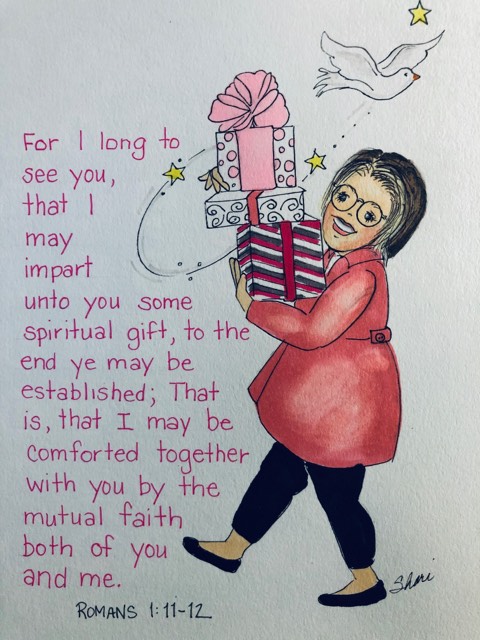 For I long to
see you,
that I
may
impart
unto you some
spiritual gift, to the
end ye may be
established; That
is, that I may be
comforted together
with you by the
mutual faith
both of you
and me.
ROMANS 1:11-12
Shari